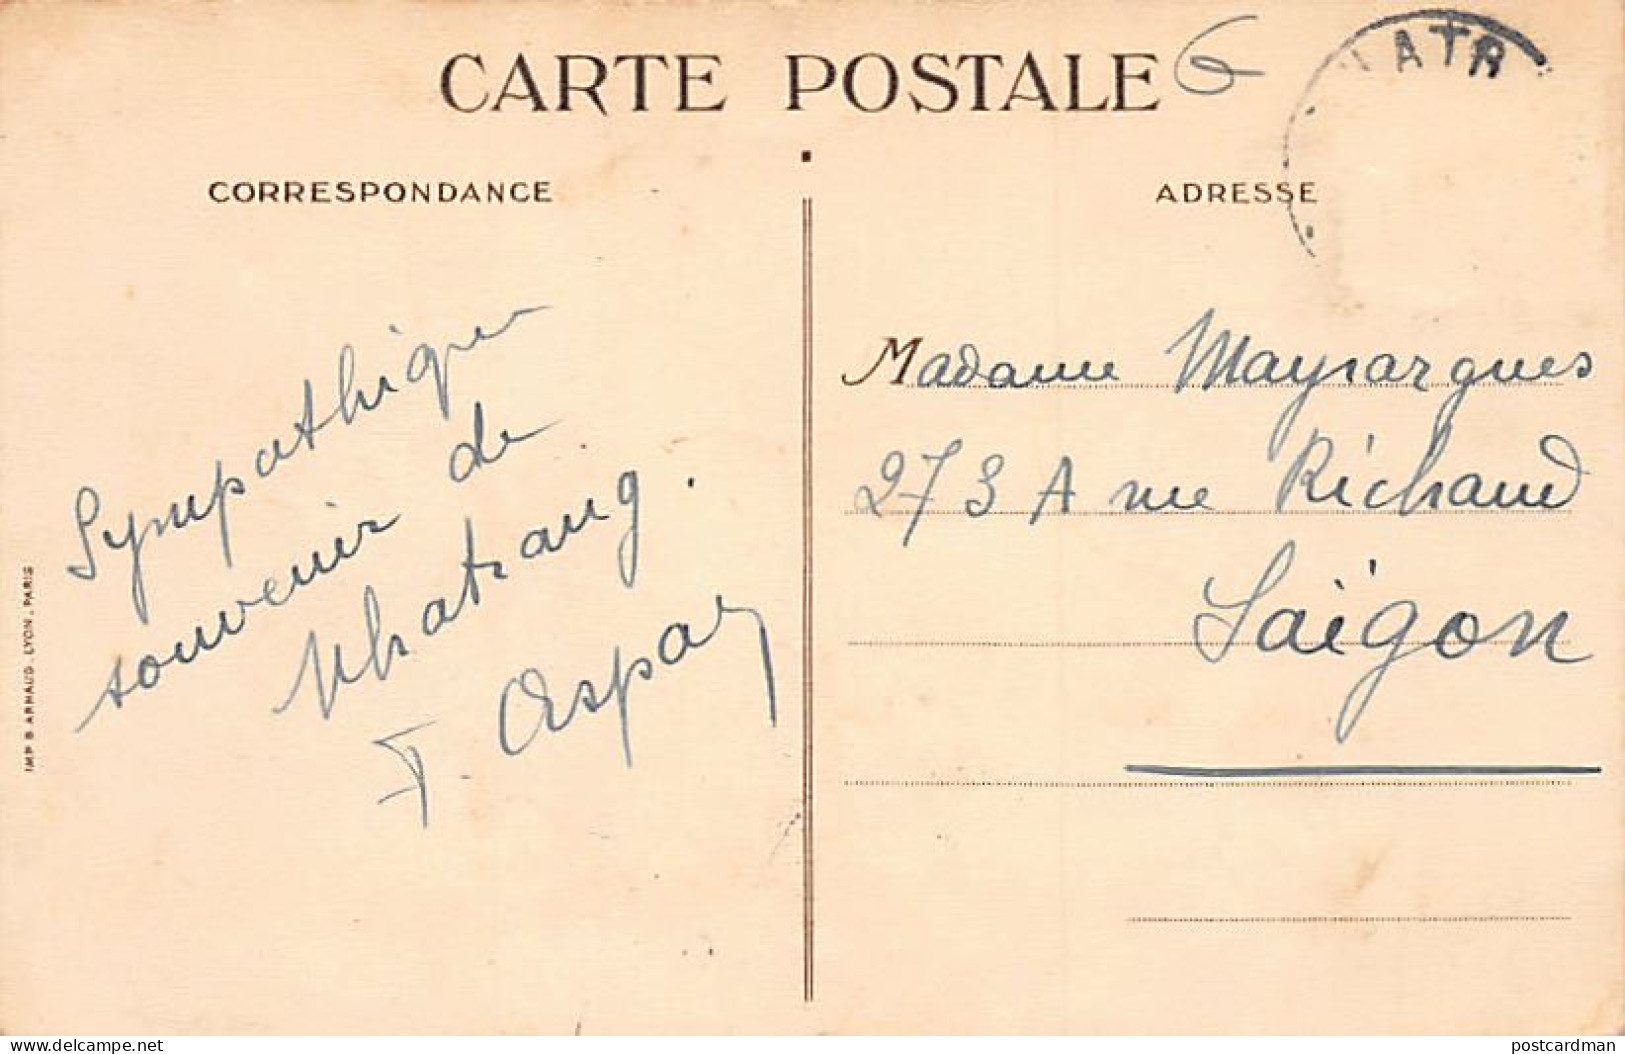 CARTE POSTALE
6
CORRESPONDANCE
ADRESSE
Sympathique
souvenir de
Nhatrang.
Madame Maysargues
273 A rue Richaud
Saïgon
IMP. B. ARNAUD. LYON. PARIS
www.delcampe.net
postcardman